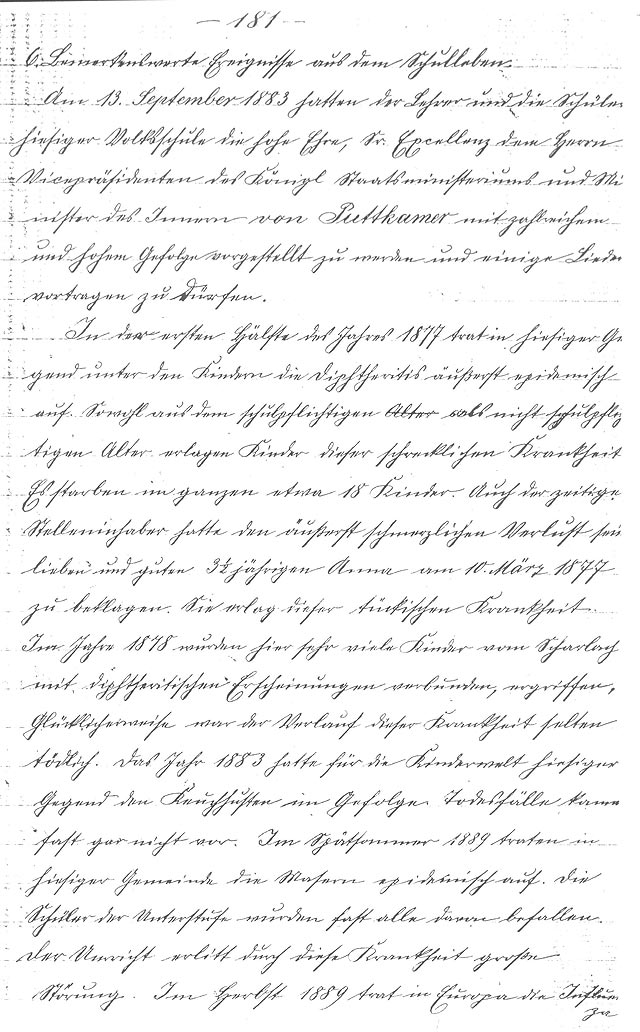 - 181 -
6. Bemerkenswerte Ereignisse aus dem Schulleben.
Am 13. September 1883 hatten der Lehrer und die Schüler
hiesiger Volksschule die hohe Ehre, Sr. Excellenz dem Herrn
Vicepräsidenten des Königl Staatsministeriums und Mi
nister des Innern von Puttkamer mit zahlreichem
und hohem Gefolge vorgestellt zu werden und einige Lieder
vortragen zu dürfen.
In der ersten Hälfte des Jahres 1877 trat in hiesiger Ge
gend unter den Kindern die Diphtheritis äußerst epidemisch
auf. Sowohl aus dem schulpflichtigen Alter als nicht schulpflich
tigen Alter erlagen Kinder dieser schrecklichen Krankheit
Es starben im ganzen etwa 18 Kinder. Auch der zeitige
Stelleninhaber hatte den äußerst schmerzlichen Verlust sei
lieben und guten 3½ jährigen Anna am 10. März 1877
zu beklagen. Sie erlag dieser tückischen Krankheit.
Im Jahre 1878 wurden hier sehr viele Kinder vom Scharlach
mit diphtheritischen Erscheinungen verbunden, ergriffen,
Glücklicherweise war der Verlauf dieser Krankheit selten
tödlich. Das Jahr 1883 hatte für die Kinderwelt hiesiger
Gegend den Keuchhusten im Gefolge. Todesfälle kamen
fast gar nicht vor. Im Spätsommer 1889 traten in
hiesiger Gemeinde die Masern epidemisch auf. Die
Schüler der Unterstufe wurden fast alle davon befallen.
Der Unricht erlitt durch diese Krankheit große
Störung. Im Herbst 1889 trat in Europa die Influen
za